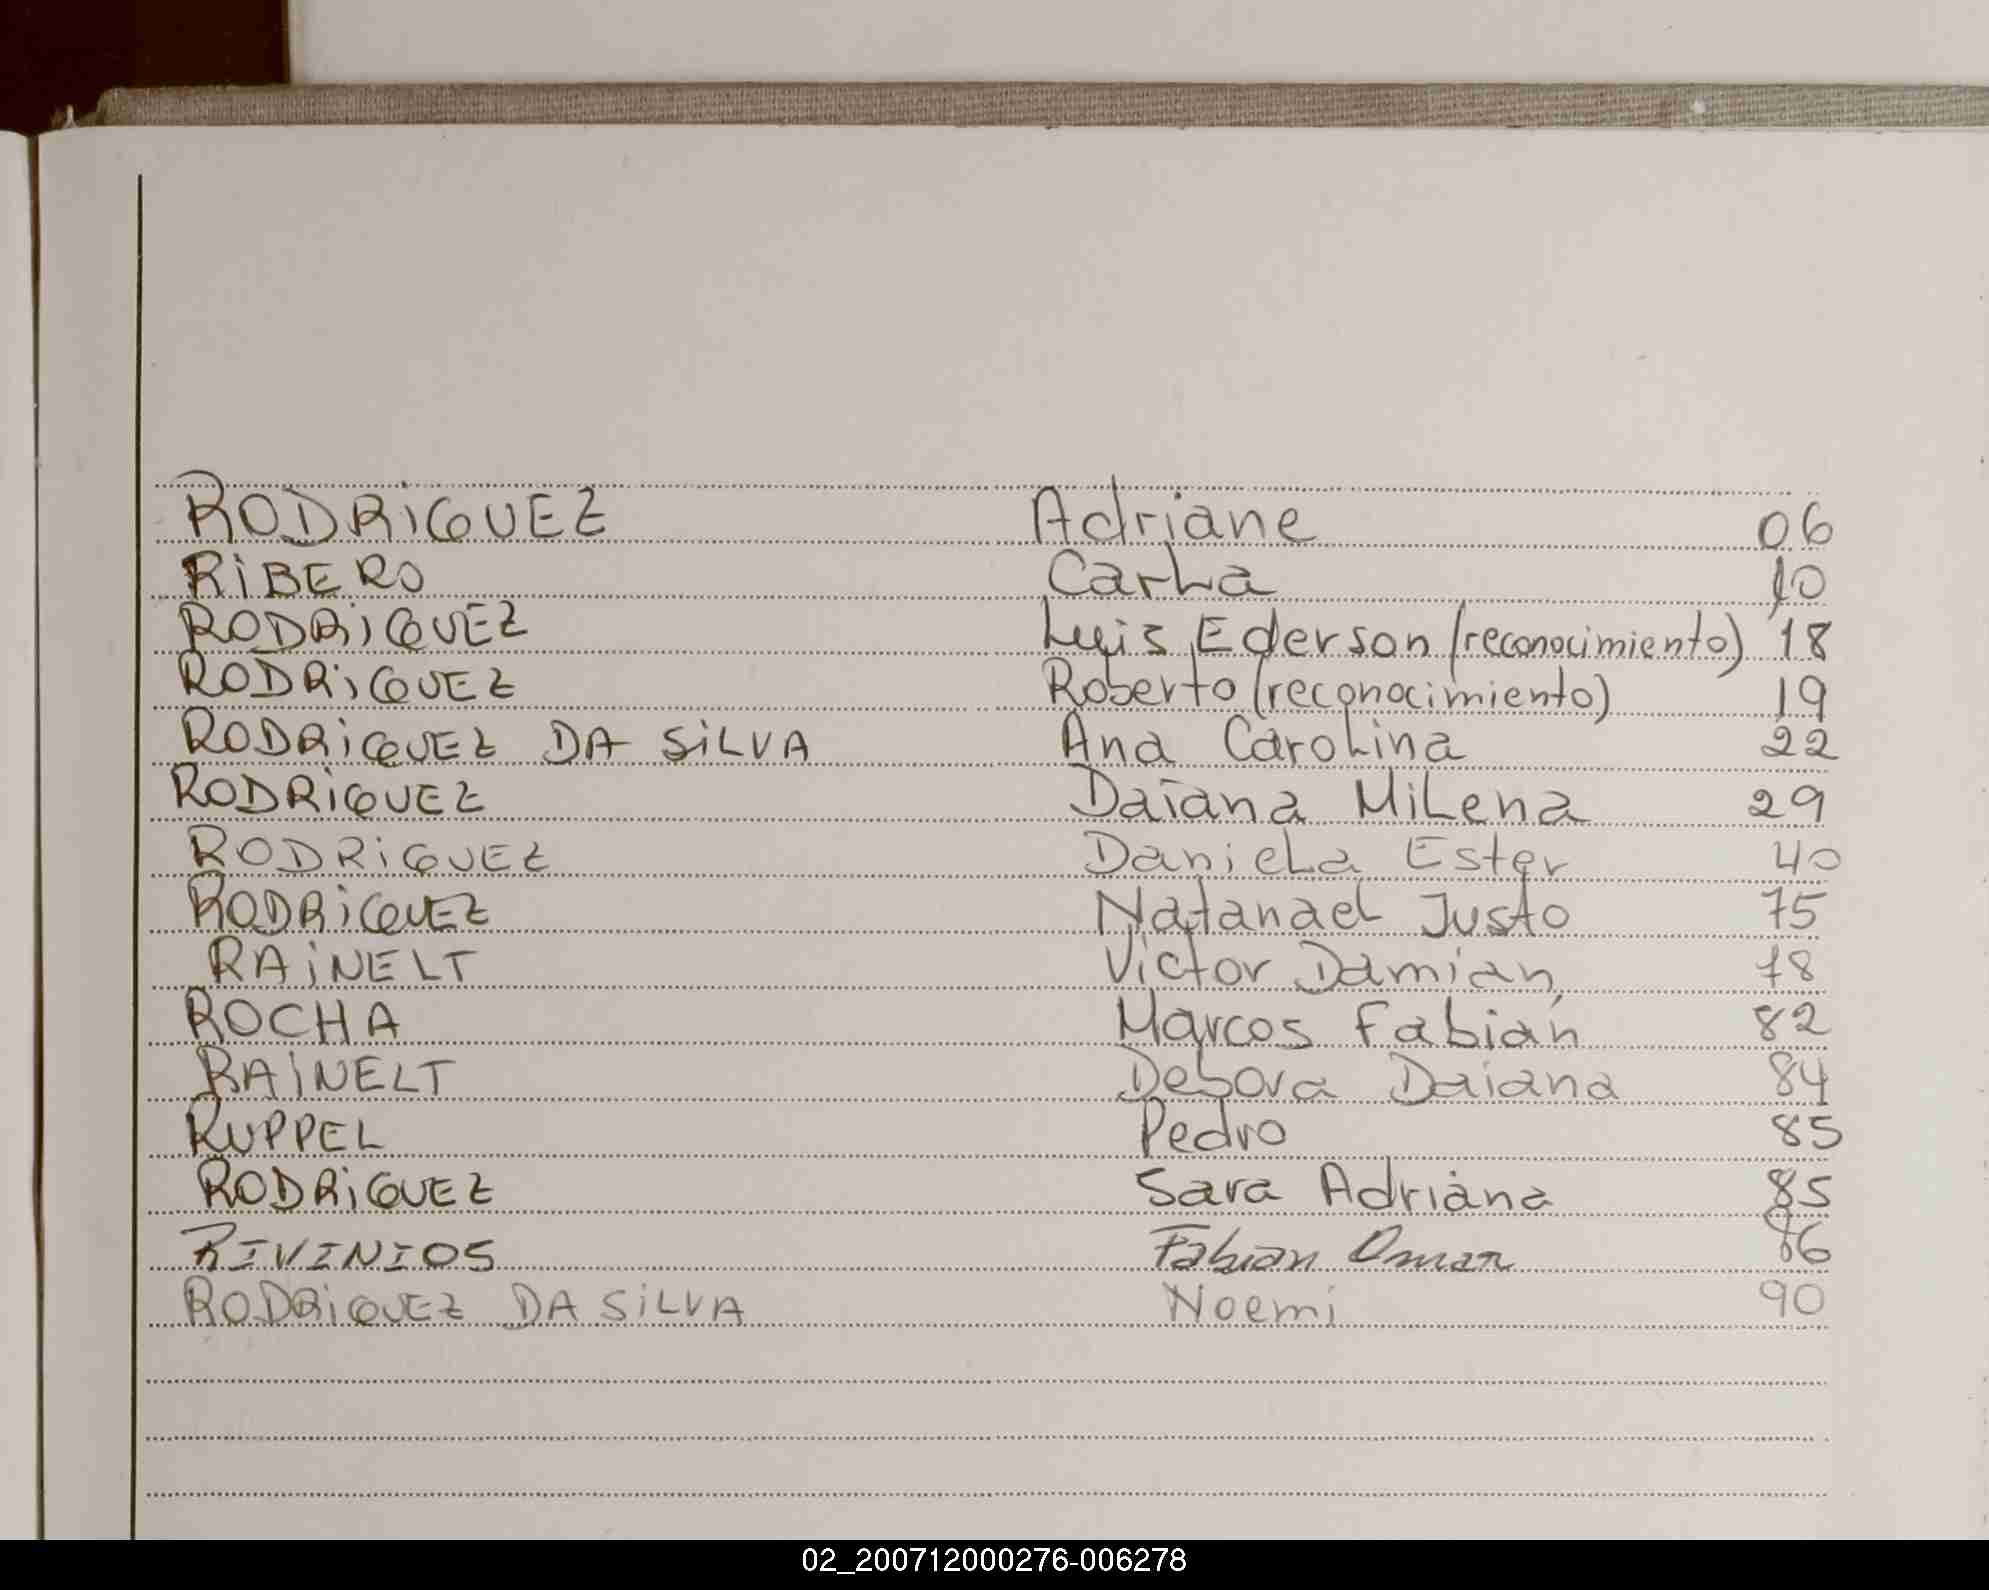 RODRIGUEZ Adriane 06
RIBERO Carla 10
RODRIGUEZ Luis Ederson (reconocimiento) 18
RODRIGUEZ Roberto (reconocimiento) 19
RODRIGUEZ DA SILVA Ana Carolina 22
RODRIGUEZ Daiana Milena 29
RODRIGUEZ Daniela Ester 40
RODRIGUEZ Natanael Justo 75
RAINELT Victor Damian 78
ROCHA Marcos Fabián 82
RAINELT Debora Daiana 84
RUPPEL Pedro 85
RODRIGUEZ Sara Adriana 85
RIVINIOS Fabian Omar 86
RODRIGUEZ DA SILVA Noemi 90
02_200712000276-006278